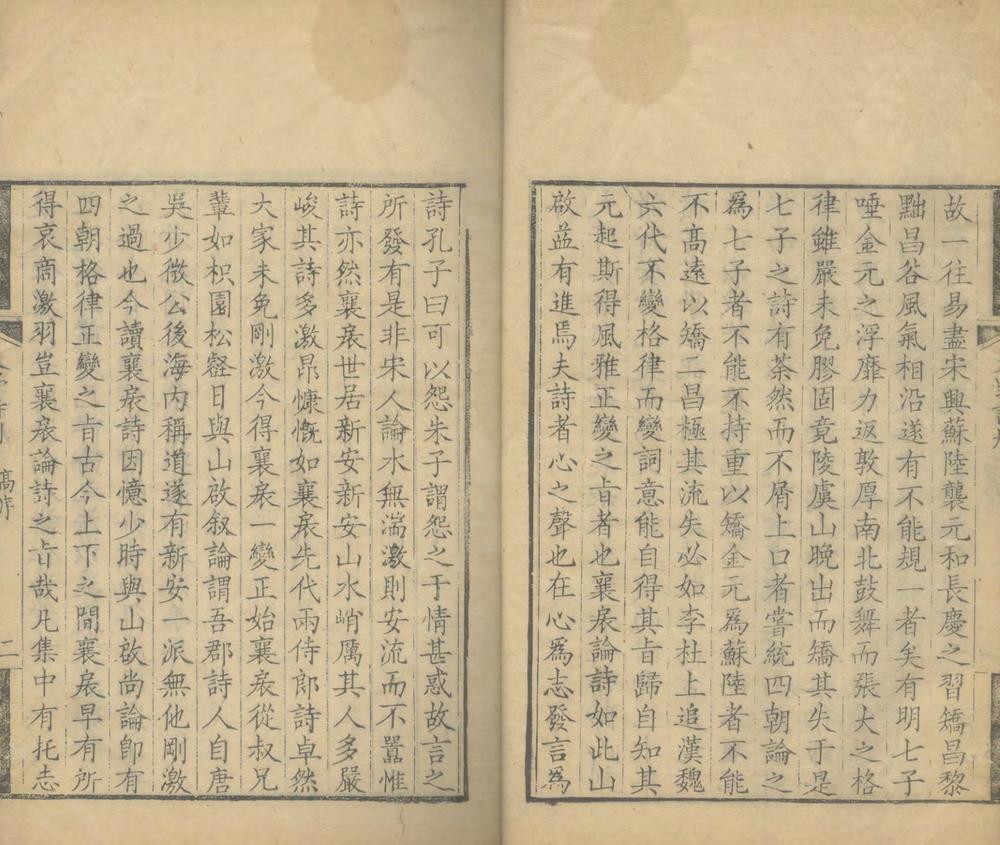 故一往易盡宋興蘇陸襲元和長慶之習矯昌黎
黜昌谷風氣相沿遂有不能規一者矣有明七子
唾金元之浮靡力返敦厚南北鼓舞而張大之格
律雖嚴未免膠固竟陵虞山晚出而矯其失于是
七子之詩有茶然而不屑上口者嘗統四朝論之
為七子者不能不持重以矯金元為蘇陸者不能
不高遠以矯二昌極其流失必如李杜上追漢魏
六代不變格律而變詞意能自得其旨歸自知其
元起斯得風雅正變之旨者也襄扆論詩如此山
啟益有進焉夫詩者心之聲也在心為志發言為
詩孔子曰可以怨朱子謂怨之于情甚惑故言之
所發有是非宋人論水無湍激則安流而不嚣惟
詩亦然襄扆世居新安新安山水峭厲其人多嚴
峻其詩多激昂慷慨如襄扆先代兩侍郎詩卓然
大家未免剛激今得襄扆一變正始襄扆從叔兄
輩如枳園松壑日與山啟叙論謂吾郡詩人自唐
吳少微公後海內稱道遂有新安一派無他剛激
之過也今讀襄扆詩因憶少時與山啟尚論即有
四朝格律正變之旨古今上下之間襄扆早有所
得哀商激羽豈襄扆論詩之旨哉凡集中有托志
二